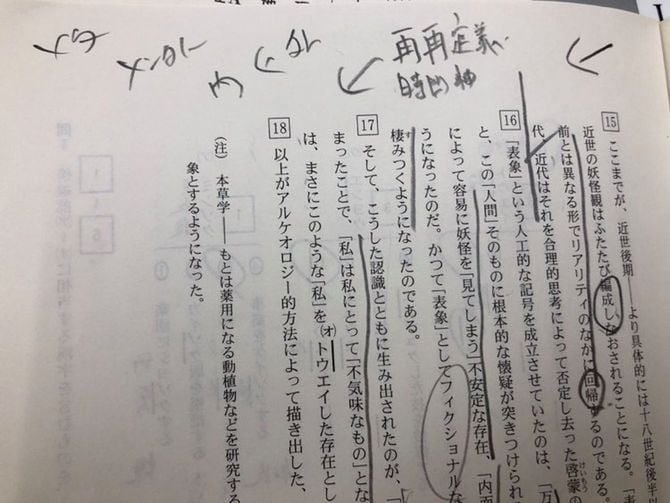 再再定義
時間軸
15 ここまでが、近世後期――より具体的には十八世紀後半
近世の妖怪観はふたたび編成しなおされることになる。「表
前とは異なる形でリアリティのなかに回帰するのである。
代、近代はそれを合理的思考によって否定し去った啓蒙
16 「表象」という人工的な記号を成立させていたのは、「万
と、この「人間」そのものに根本的な懐疑が突きつけられ
によって容易に妖怪を「見てしまう」不安定な存在、「内面
うになったのだ。かつて「表象」としてフィクショナルな
棲みつくようになったのである。
17 そして、こうした認識とともに生み出されたのが、「
まったことで、「私」は私にとって「不気味なもの」とな
は、まさにこのような「私」を(オ)トウエイした存在とし
18 以上がアルケオロジー的方法によって描き出した、
(注) 本草学――もとは薬用になる動植物などを研究する
象とするようになった。